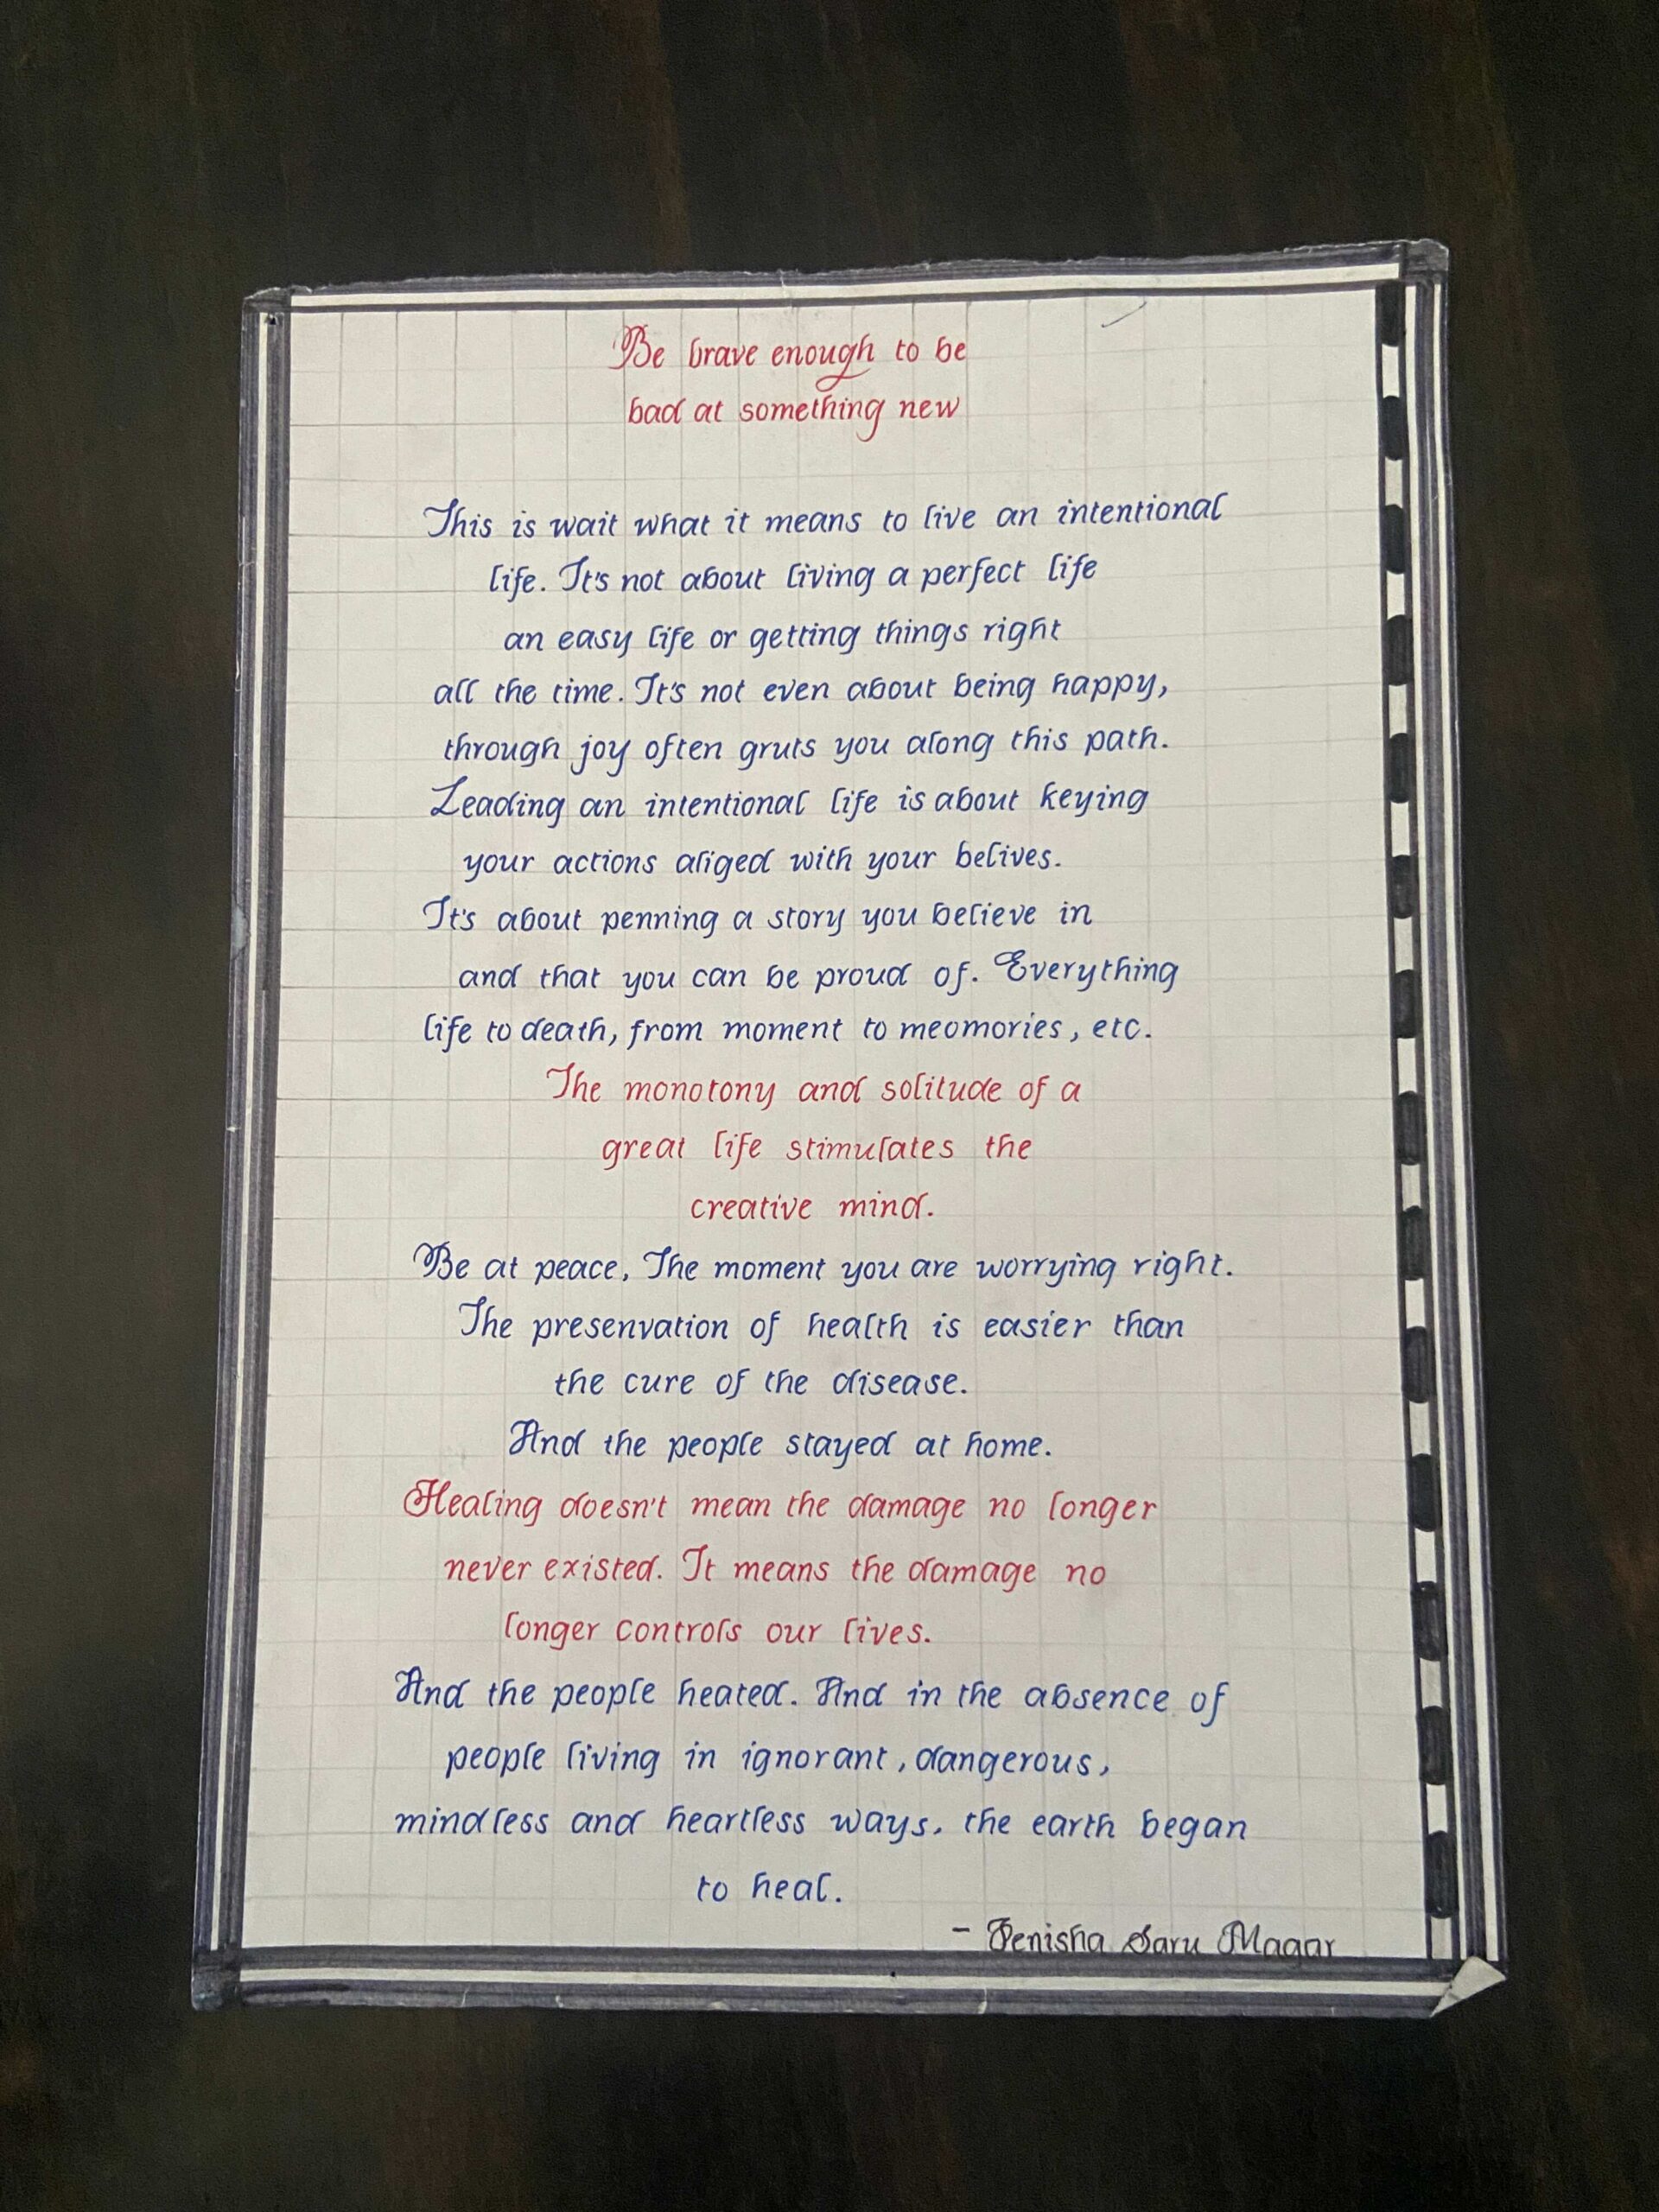 Be brave enough to be
bad at something new
This is wait what it means to live an intentional
life. It's not about living a perfect life
an easy life or getting things right
all the time. It's not even about being happy,
through joy often gruts you along this path.
Leading an intentional life is about keying
your actions aliged with your belives.
It's about penning a story you believe in
and that you can be proud of. Everything
life to death, from moment to meomories, etc.
The monotony and solitude of a
great life stimulates the
creative mind.
Be at peace, The moment you are worrying right.
The presenvation of health is easier than
the cure of the disease.
And the people stayed at home.
Healing doesn't mean the damage no longer
never existed. It means the damage no
longer controls our lives.
And the people heated. And in the absence of
people living in ignorant, dangerous,
mindless and heartless ways. the earth began
to heal.
- Jenisha Saru Magar